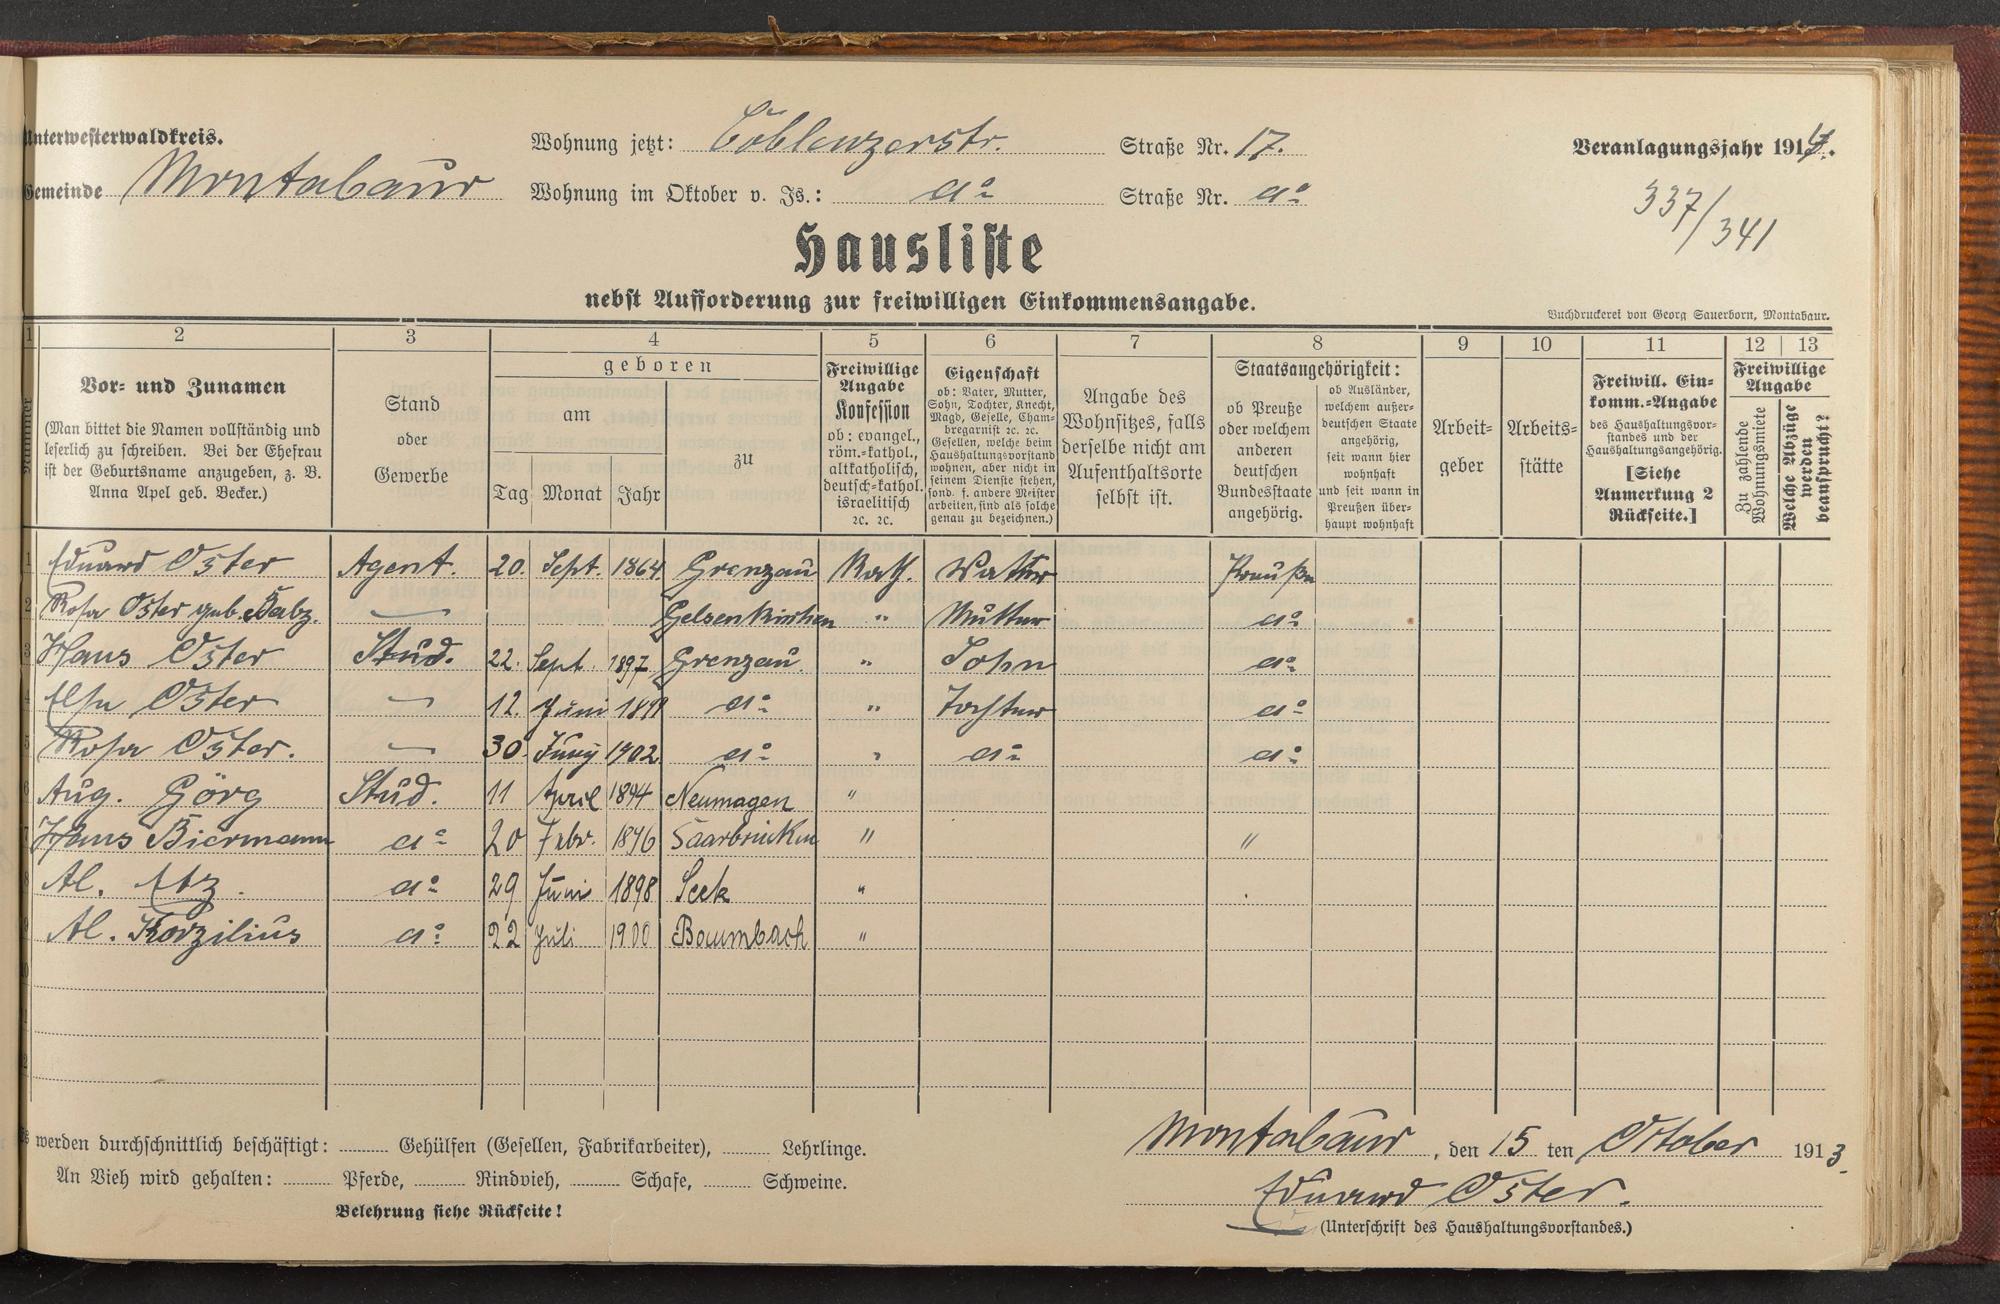 Unterwesterwaldkreis.
Wohnung jetzt: Coblenzerstr. Straße Nr. 17.
Veranlagungsjahr 1914.
Gemeinde Montabaur
Wohnung im Oktober v. Js.: do Straße Nr. do
337/341
Hausliste
nebst Aufforderung zur freiwilligen Einkommensangabe.
Buchdruckerei von Georg Sauerborn, Montabaur.
1 2 3 4 5 6 7 8 9 10 11 12 13
Nummer
Vor- und Zunamen
(Man bittet die Namen vollständig und
leserlich zu schreiben. Bei der Ehefrau
ist der Geburtsname anzugeben, z. B.
Anna Apel geb. Becker.)
Stand
oder
Gewerbe
geboren
am
Tag Monat Jahr
zu
Freiwillige
Angabe
Konfession
ob: evangel.,
röm.-kathol.,
altkatholisch,
deutsch-kathol.
israelitisch
ꝛc. ꝛc.
Eigenschaft
ob: Vater, Mutter,
Sohn, Tochter, Knecht,
Magd, Geselle, Cham-
bregarnist ꝛc. ꝛc.
Gesellen, welche beim
Haushaltungsvorstand
wohnen, aber nicht in
seinem Dienste stehen,
sond. f. andere Meister
arbeiten, sind als solche
genau zu bezeichnen.)
Angabe des
Wohnsitzes, falls
derselbe nicht am
Aufenthaltsorte
selbst ist.
Staatsangehörigkeit:
ob Preuße
oder welchem
anderen
deutschen
Bundesstaate
angehörig.
ob Ausländer,
welchem außer-
deutschen Staate
angehörig,
seit wann hier
wohnhaft
und seit wann in
Preußen über-
haupt wohnhaft
Arbeit-
geber
Arbeits-
stätte
Freiwill. Ein-
komm.-Angabe
des Haushaltungsvor-
standes und der
Haushaltungsangehörig.
[Siehe
Anmerkung 2
Rückseite.]
Freiwillige
Angabe
Zu zahlende
Wohnungsmiete
Welche Abzüge
werden
beansprucht?
1 Eduard Oster Agent. 20. Sept. 1864 Grenzau Kath. Vatter Preuße
2 Rosa Oster geb. Gelsenkirchen " Mutter do
3 Hans Oster Stud. 22. Sept. 1897 Grenzau " Sohn do
4 Elsa Oster — 12. Juni 1899 do " Tochter do
5 Rosa Oster. — 30. Juny 1902. do " do do
6 Aug. Görg Stud. 11 April 1894 Neumagen "
7 Hans Biermann do 20 Febr. 1896 Saarbrücken " "
8 Al. Etz. do 29 Juni 1898 Seck "
9 Al. Korzilius do 22 Juli 1900 Baumbach "
10
1
2
Es werden durchschnittlich beschäftigt: Gehülfen (Gesellen, Fabrikarbeiter), Lehrlinge.
An Vieh wird gehalten: Pferde, Rindvieh, Schafe, Schweine.
Belehrung siehe Rückseite!
Montabaur, den 15 ten Oktober 1913.
Eduard Oster.
(Unterschrift des Haushaltungsvorstandes.)